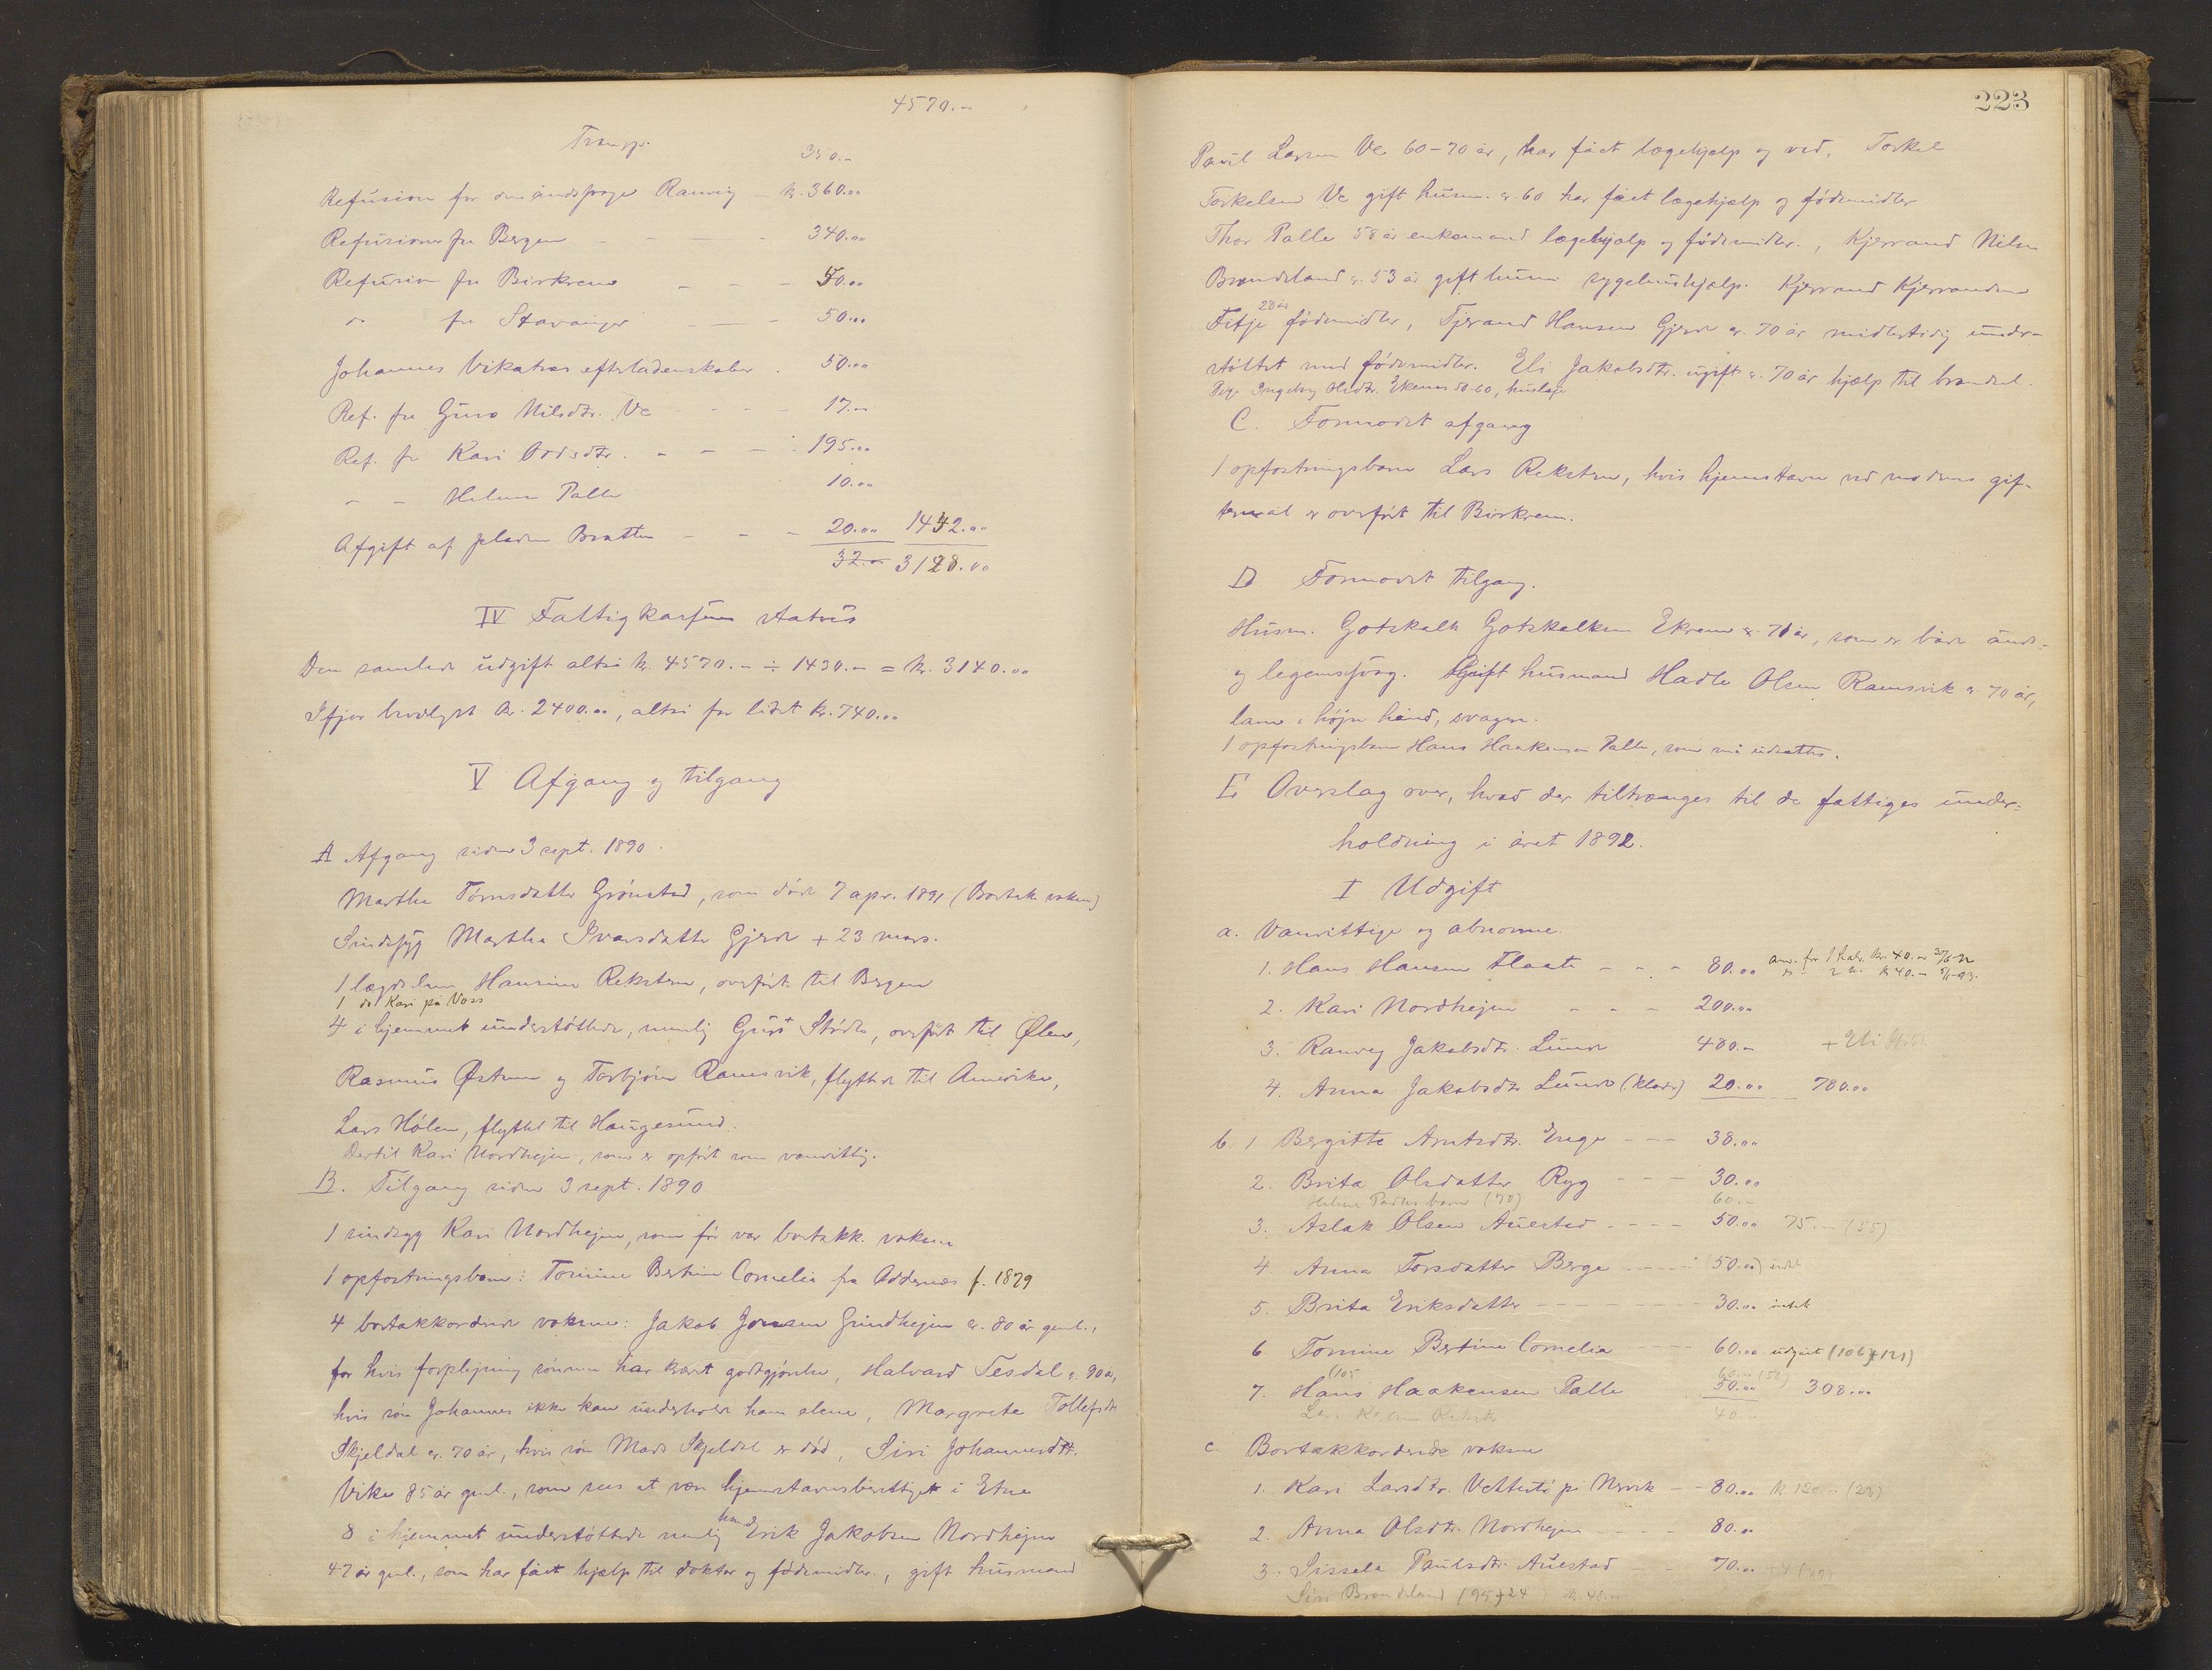 4570.-
Transp. 350.-
Refusion for den åndssvage Ranveig - kr. 360.00
Refusioner fra Bergen - - - - 340.00
Refusion fra Birkrem - - - 50.00
" fra Stavanger - - - 50.00
Johannes Vikatræs efterladenskaber . 50.00
Ref. fra Guro Nilsdtr. Ve - - - 17.00
Ref. fr Kari Oddsdtr. - - - - 195.00
" - Helene Palle 10.00
Afgift af pladsen Bratten - - - 20.00 1442.00
32.00 3128.00
IV Fattigkassens status
Den samlede udgift altså kr. 4570.- ÷ 1430.- = kr. 3140.00
Ifjor bevilget kr. 2400.00, altså for lidet kr. 740.00
V Afgang og tilgang
A Afgang siden 3 sept. 1890.
Martha Tørresdatter Grønstad, som døde 7 apr. 1891 (Bortak. voksen)
Sindssyg Martha Ivarsdatter Gjerde + 23 mars.
1 lægdslem Hansine Reksten, overført til Bergen
1 do Kari på Voss
4 i hjemmet understøttede, nemlig Guro Stødle, overført til Ølen,
Rasmus Østrem og Torbjørn Ramsvik, flyttede til Amerika,
Lars Hølen, flyttet til Haugesund.
Dertil Kari Nordhejen, som er opført som vanvittig.
B. Tilgang siden 3 sept. 1890
1 sindssyg Kari Nordhejen, som før var bortakk. voksen
1 opfostringsbarn: Tomine Bertine Cornelia fra Oddernes f. 1879
4 bortakkorderede voksne: Jakob Jonsen Grindhejm er. 80 år gml.,
for hvis forplejning sønnen har krævet godtgjørelse, Halvard Tesdal er. 90 år,
hvis søn Johannes ikke kan underholde ham alene, Margrete Tollefsdtr
Skjeldal er. 70 år, hvis søn Mads Skjeldal er død, Siri Johannesdtr.
Vike 85 år gml., som sees at være hjemstavnsberettiget i Etne
8 i hjemmet understøttede nemlig Erik Jakobsen Nordhejm
47 år gml., som har fået hjælp til doktor og fødemidler, gift husmand
223
Paul Larsen Ve 60-70 år, har fået lægehjælp og ved, Torkel
Torkelsen Ve gift husm. er 60 har fået lægehjælp og fødemidler
Thor Palle 58 år enkemand lægehjælp og fødemidler, Kjerrand Nilsen
Brandeland er. 53 år gift husm. sygehushjælp. Kjerrand Kjerrandsen
28 år
Fitje fødemidler, Tjerand Hansen Gjerde er. 70 år midlertidig under-
støttet med fødemidler. Eli Jakobsdtr. ugift er. 70 år hjælp til brændsel.
Pige Ingeborg Olsdtr. Ekenes 50-60, husleje
C. Formodet afgang
1 opfostringsbarn Lars Reksten, hvis hjemstavn ved moderens gif-
termål er overført til Birkrem.
D. Formodet tilgang.
Husm. Gotskalk Gotskalksen Ekrem er. 70 år, som er både ånds-
og legemssvag. Gift husmand Hadle Olsen Ramsvik er. 70 år,
lam i højre hånd, svagsynt.
1 opfostringsbarn Hans Haakensen Palle, som må udsættes.
E. Overslag over, hvad der tiltrænges til de fattiges under-
holdning i året 1892.
I Udgift
a. Vanvittige og abnorme.
1. Hans Hansen Flaate - - - 80.00 anv. for 1 halv. kr. 40.00
" 2 h. kr 40.-
2. Kari Nordhejen - - - 200.00
3. Ranveig Jakobsdtr. Lunde 480.- + Eli
4. Anna Jakobsdtr Lunde (klæder) 20.00 780.00
b. 1 Bergitte Arntsdtr. Enge - - - 38.00
2. Brita Olsdatter Ryg - - - 30.00
Helene Palles barn (70) 60.-
3. Aslak Olsen Auestad - - - - 50.00 75.- (55)
4. Anna Torsdatter Berge - - - - (50.00)
5. Brita Eriksdatter - - - - - 30.00 intet
6 Tomine Bertine Cornelia - - - - 60.00 udgået (106+121)
(105 60.00 (58)
7. Hans Haakensen Palle 50.00 308.00
Lars Reksten 40.-
c Bortakkorderede voksne
1. Kari Larsdtr. Vettestø på Nervik - - 80.00 kr 120.- (28)
2. Anna Olsdtr. Nordhejen - - - - 80.00
3. Sissela Paulsdtr. Auestad - - 70.00
Siri Brandeland (95+24) kr. 48.00